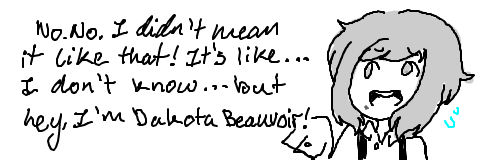 No. No. I didn't mean
it like that! It's like...
I don't know... but
hey, I'm Dakota Beauvoir!